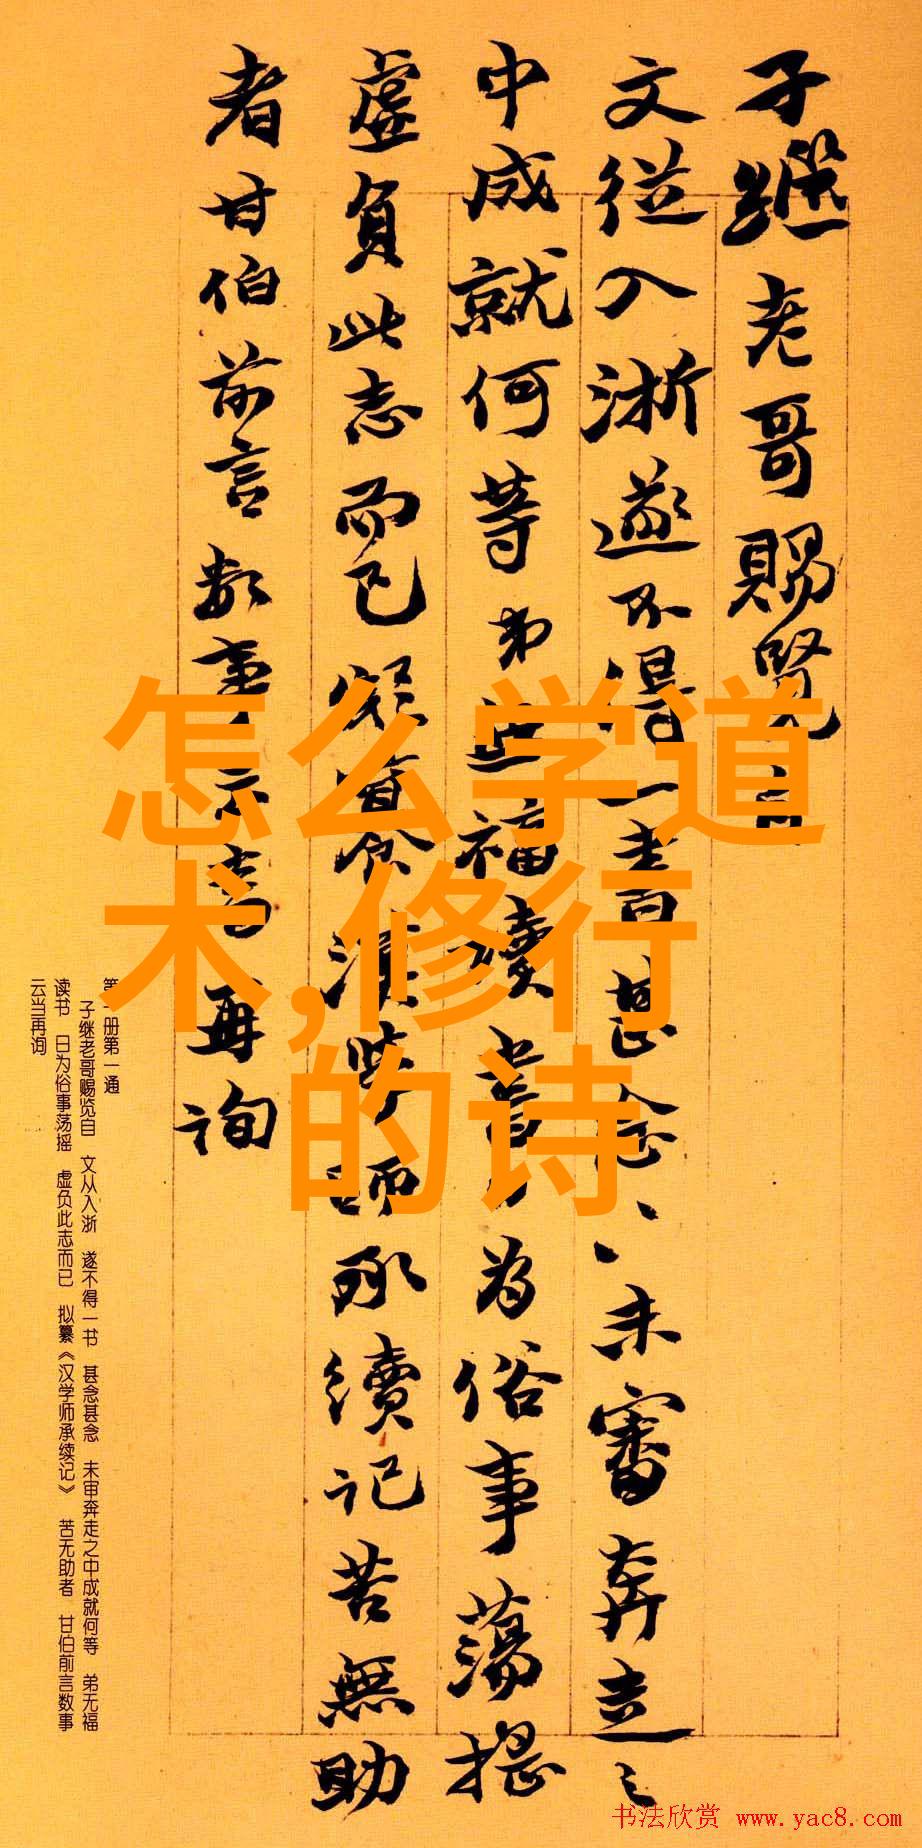 子繼老哥賜覽自
文從入浙遂不得一書甚念〻未審奔走之
中成就何等弟無福讀書日為俗事蕩搖
虛負此志而已擬纂漢學師承續記苦無助
者甘伯前言數事云當再詢
怎么学道
术,修行
的诗
第一册第一通
子继老哥赐览自 文从入浙 遂不得一书 甚念甚念 未审奔走之中成就何等 弟无福
读书 日为俗事荡摇 虚负此志而已 拟纂《汉学师承续记》 苦无助者 甘伯前言数事
云当再询
书法欣赏 www.yac8.com